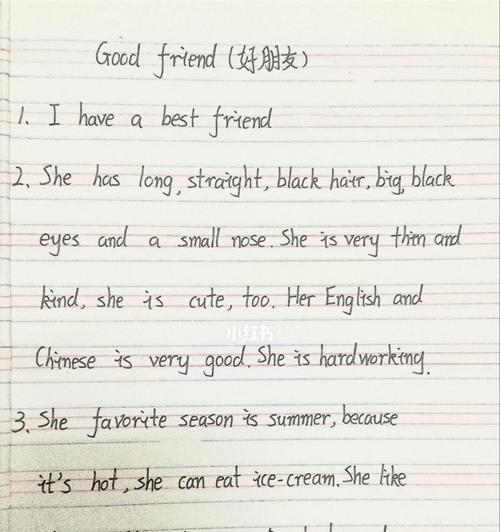 Good friend (好朋友)
1. I have a best friend
2. She has long, straight, black hair, big, black
eyes and a small nose. She is very thin and
kind, she is cute, too. Her English and
小红书
Chinese is very good. She is hardworking.
3. She favorite season is summer, because
it's hot, she can eat ice-cream. She like